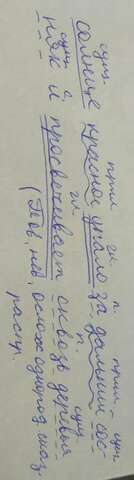 сущ прил гл п. прил сущ
солнце красное упало за дальний сос-
сущ с. гл п. сущ
няк и просвечивает сквозь деревья
(Пов, нев, ослож однород сказ,
распр.